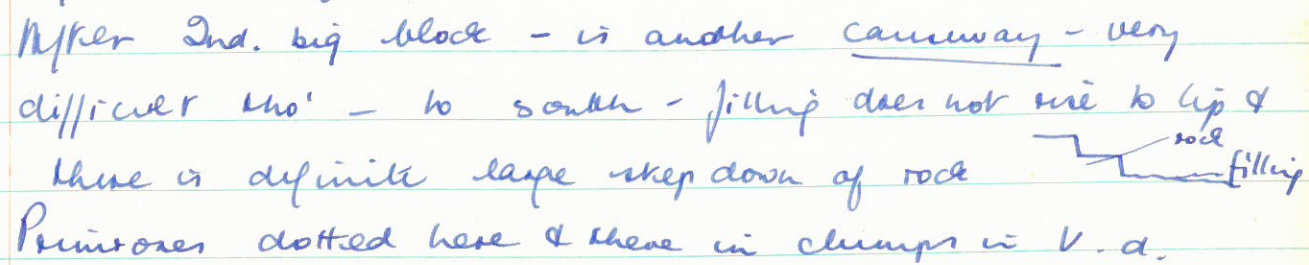 After 2nd. big block - is another causeway - very
difficult tho' - to south - filling does not rise to lip &
there is definite large step down of rock
rock
filling
Primroses dotted here & there in clumps in V.d.